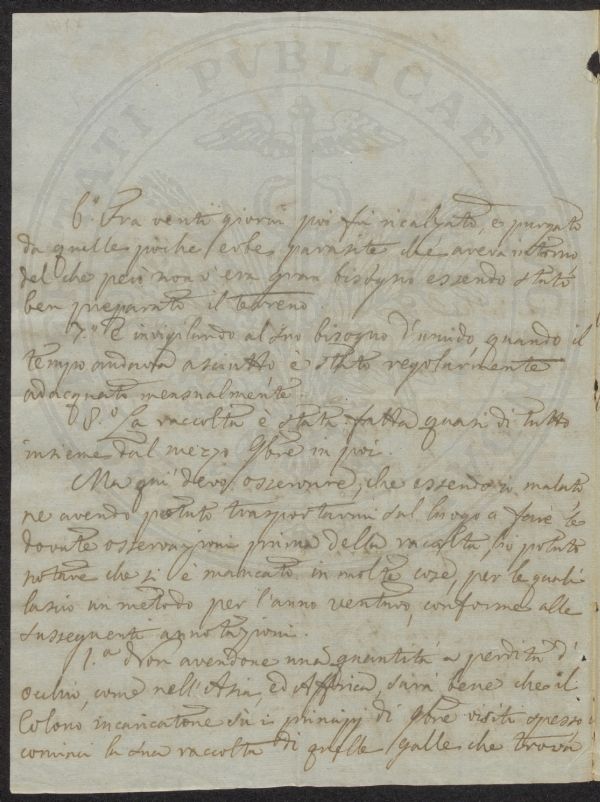 6.° Fra venti giorni poi fù ricalzato, e purgato
da quelle poche erbe parasite che aveva intorno
del che però non v'era gran bisogno essendo stato
ben preparato il terreno.
7.° E invigilando al suo bisogno d'umido, quando il
tempo andava asciutto è stato regolarmente
adacquato mensualmente.
8.° La raccolta è stata fatta quasi di tutto
insieme dal mezzo 9bre in poi.
Ma quì devo osservare, che essendo io malato
ne avendo potuto trasportarmi sul luogo a fare le
dovute osservazioni prima della racolta, hò potuto
notare che si è mancato in molte cose, per le quali
lascio un metodo per l'anno venturo, conforme alle
susseguenti annotazioni.
1.a Non avendone una quantità a perdita d'
ochio, come nell'Asia, ed Affrica, sarà bene che il
Colono incaricatone su i principj di 9bre visiti spesso e
cominci la sua raccolta di quelle galle che trova